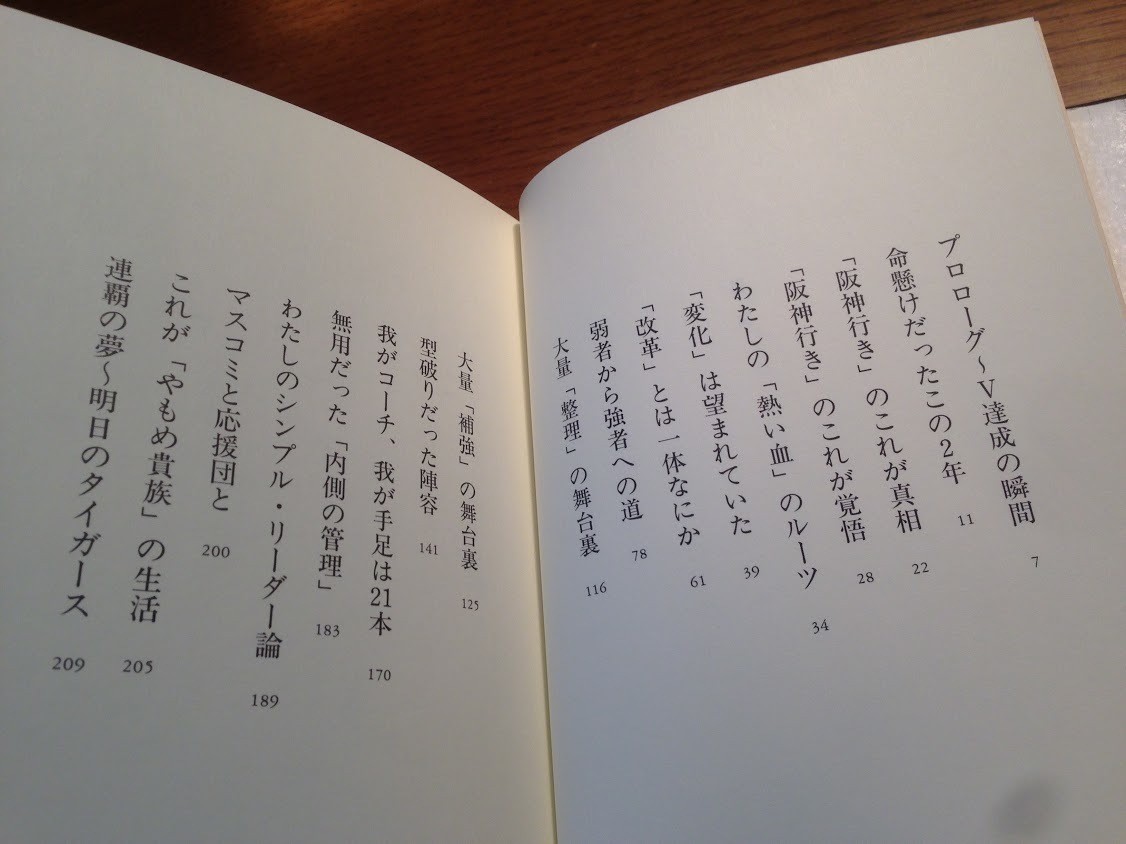 プロローグ〜V達成の瞬間 7
命懸けだったこの2年 11
「阪神行き」のこれが真相 22
「阪神行き」のこれが覚悟 28
わたしの「熱い血」のルーツ 34
「変化」は望まれていた 39
「改革」とは一体なにか 61
弱者から強者への道 78
大量「整理」の舞台裏 116
大量「補強」の舞台裏 125
型破りだった陣容 141
我がコーチ、我が手足は21本 170
無用だった「内側の管理」 183
わたしのシンプル・リーダー論 189
マスコミと応援団と 200
これが「やもめ貴族」の生活 205
連覇の夢〜明日のタイガース 209